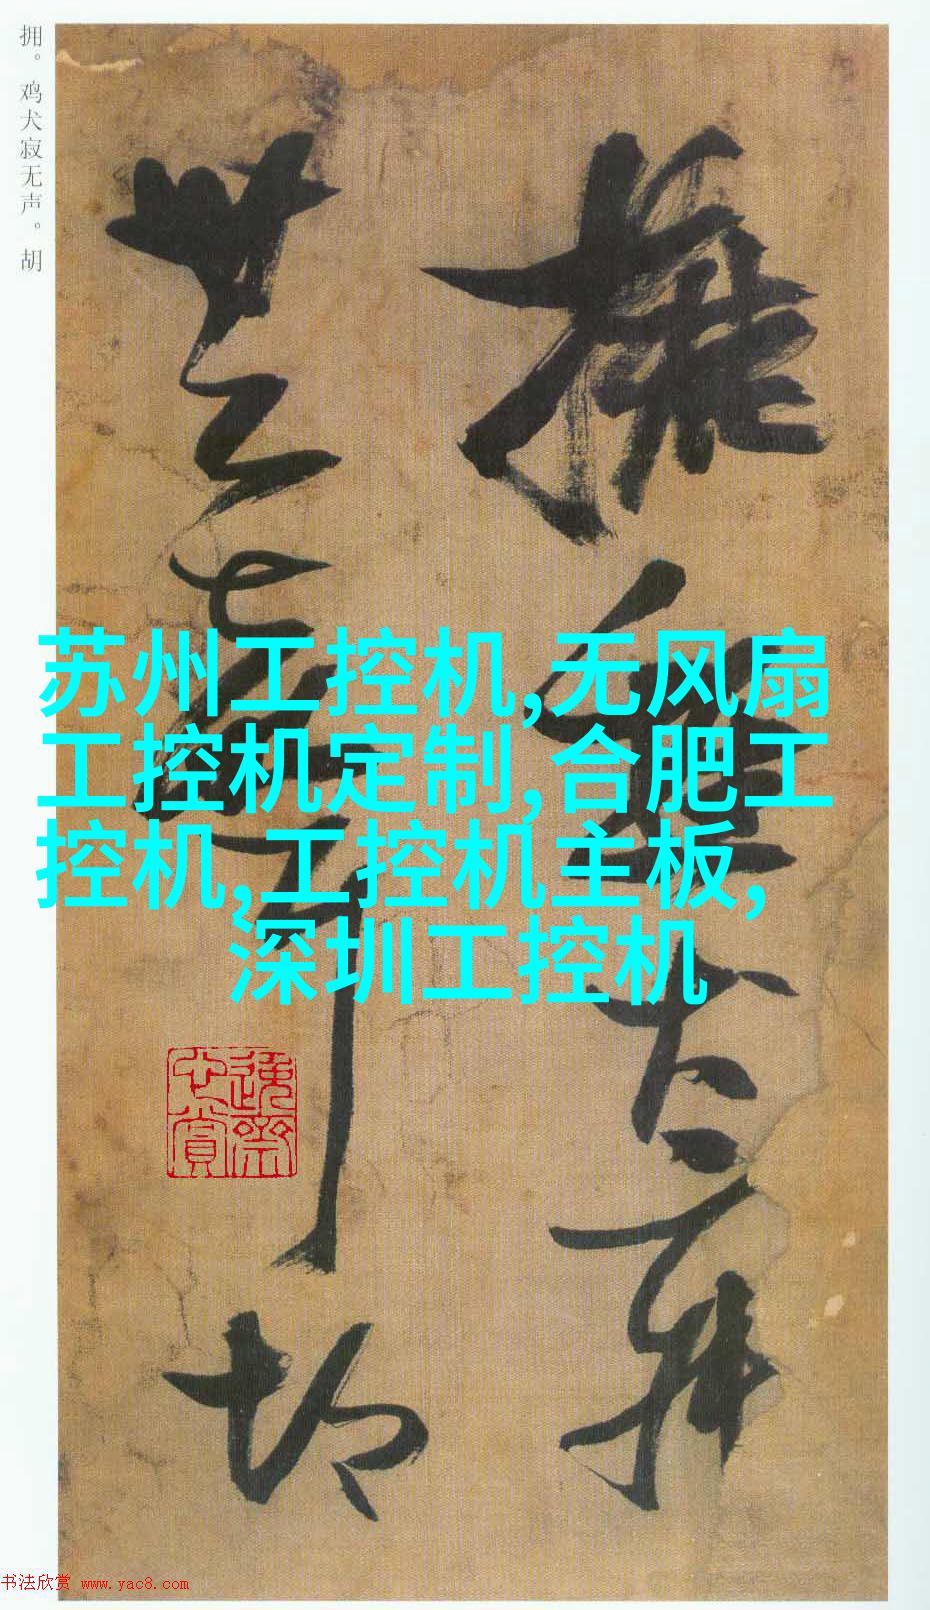 拥。鸡犬寂无声。胡
拥鸡犬寂
无声 胡
苏州工控机,无风扇
工控机定制,合肥工
控机,工控机主板,
深圳工控机
书法欣赏 www.yac8.com